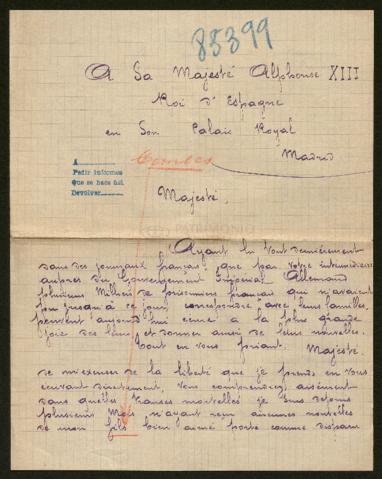 85399
A Sa Majesté Alphonse XIII
Roi d'Espagne
en Son Palais Royal
Madrid
A
Combes
Pedir informes
Que se hace así.
Devolver
Majesté,
PATRIMONIO
Ayant lu tout dernièrement
dans des journaux français, que par votre intermédiaire
auprès du Gouvernement Impérial Allemand
plusieurs Milliers de prisonniers français qui n'avaient
pu jusqu'à ce jour, correspondre avec leurs familles,
peuvent aujourd'hui écrire a la plus grande
joie des leurs et donner ainsi de leurs nouvelles.
tout en vous priant. Majesté
de m'excuser de la liberté que je prends en vous
écrivant directement, Vous comprendrez aisément
dans quelles transes mortelles je suis depuis
plusieurs Mois n'ayant reçu aucunes nouvelles
de mon fils bien aimé porté comme disparu